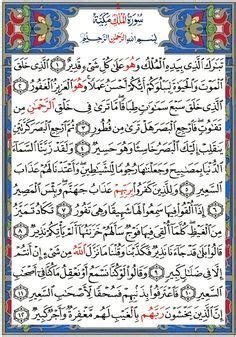 سُورَةُ الْمُلْكِ مَكِّيَّةٌ
بِسْمِ اللّٰهِ الرَّحْمٰنِ الرَّحِيمِ
تَبَارَكَ الَّذِي بِيَدِهِ الْمُلْكُ وَهُوَ عَلٰى كُلِّ شَيْءٍ قَدِيرٌ ﴿١﴾ اَلَّذِي خَلَقَ
الْمَوْتَ وَالْحَيٰوةَ لِيَبْلُوَكُمْ اَيُّكُمْ اَحْسَنُ عَمَلًا وَهُوَ الْعَزِيزُ الْغَفُورُ ﴿٢﴾
اَلَّذِي خَلَقَ سَبْعَ سَمٰوَاتٍ طِبَاقًا مَا تَرٰى فِي خَلْقِ الرَّحْمٰنِ مِنْ
تَفَاوُتٍ فَارْجِعِ الْبَصَرَ هَلْ تَرٰى مِنْ فُطُورٍ ﴿٣﴾ ثُمَّ ارْجِعِ الْبَصَرَ كَرَّتَيْنِ
يَنْقَلِبْ اِلَيْكَ الْبَصَرُ خَاسِئًا وَهُوَ حَسِيرٌ ﴿٤﴾ وَلَقَدْ زَيَّنَّا السَّمَاءَ
الدُّنْيَا بِمَصَابِيحَ وَجَعَلْنَاهَا رُجُومًا لِلشَّيَاطِينِ وَاَعْتَدْنَا لَهُمْ عَذَابَ
السَّعِيرِ ﴿٥﴾ وَلِلَّذِينَ كَفَرُوا بِرَبِّهِمْ عَذَابُ جَهَنَّمَ وَبِئْسَ الْمَصِيرُ
﴿٦﴾ اِذَا اُلْقُوا فِيهَا سَمِعُوا لَهَا شَهِيقًا وَهِيَ تَفُورُ ﴿٧﴾ تَكَادُ تَمَيَّزُ
مِنَ الْغَيْظِ كُلَّمَا اُلْقِيَ فِيهَا فَوْجٌ سَاَلَهُمْ خَزَنَتُهَا اَلَمْ يَاْتِكُمْ نَذِيرٌ ﴿٨﴾
قَالُوا بَلٰى قَدْ جَاءَنَا نَذِيرٌ فَكَذَّبْنَا وَقُلْنَا مَا نَزَّلَ اللّٰهُ مِنْ شَيْءٍ اِنْ اَنْتُمْ
اِلَّا فِي ضَلَالٍ كَبِيرٍ ﴿٩﴾ وَقَالُوا لَوْ كُنَّا نَسْمَعُ اَوْ نَعْقِلُ مَا كُنَّا فِي اَصْحَابِ
السَّعِيرِ ﴿١٠﴾ فَاعْتَرَفُوا بِذَنْبِهِمْ فَسُحْقًا لِاَصْحَابِ السَّعِيرِ ﴿١١﴾
اِنَّ الَّذِينَ يَخْشَوْنَ رَبَّهُمْ بِالْغَيْبِ لَهُمْ مَغْفِرَةٌ وَاَجْرٌ كَبِيرٌ ﴿١٢﴾